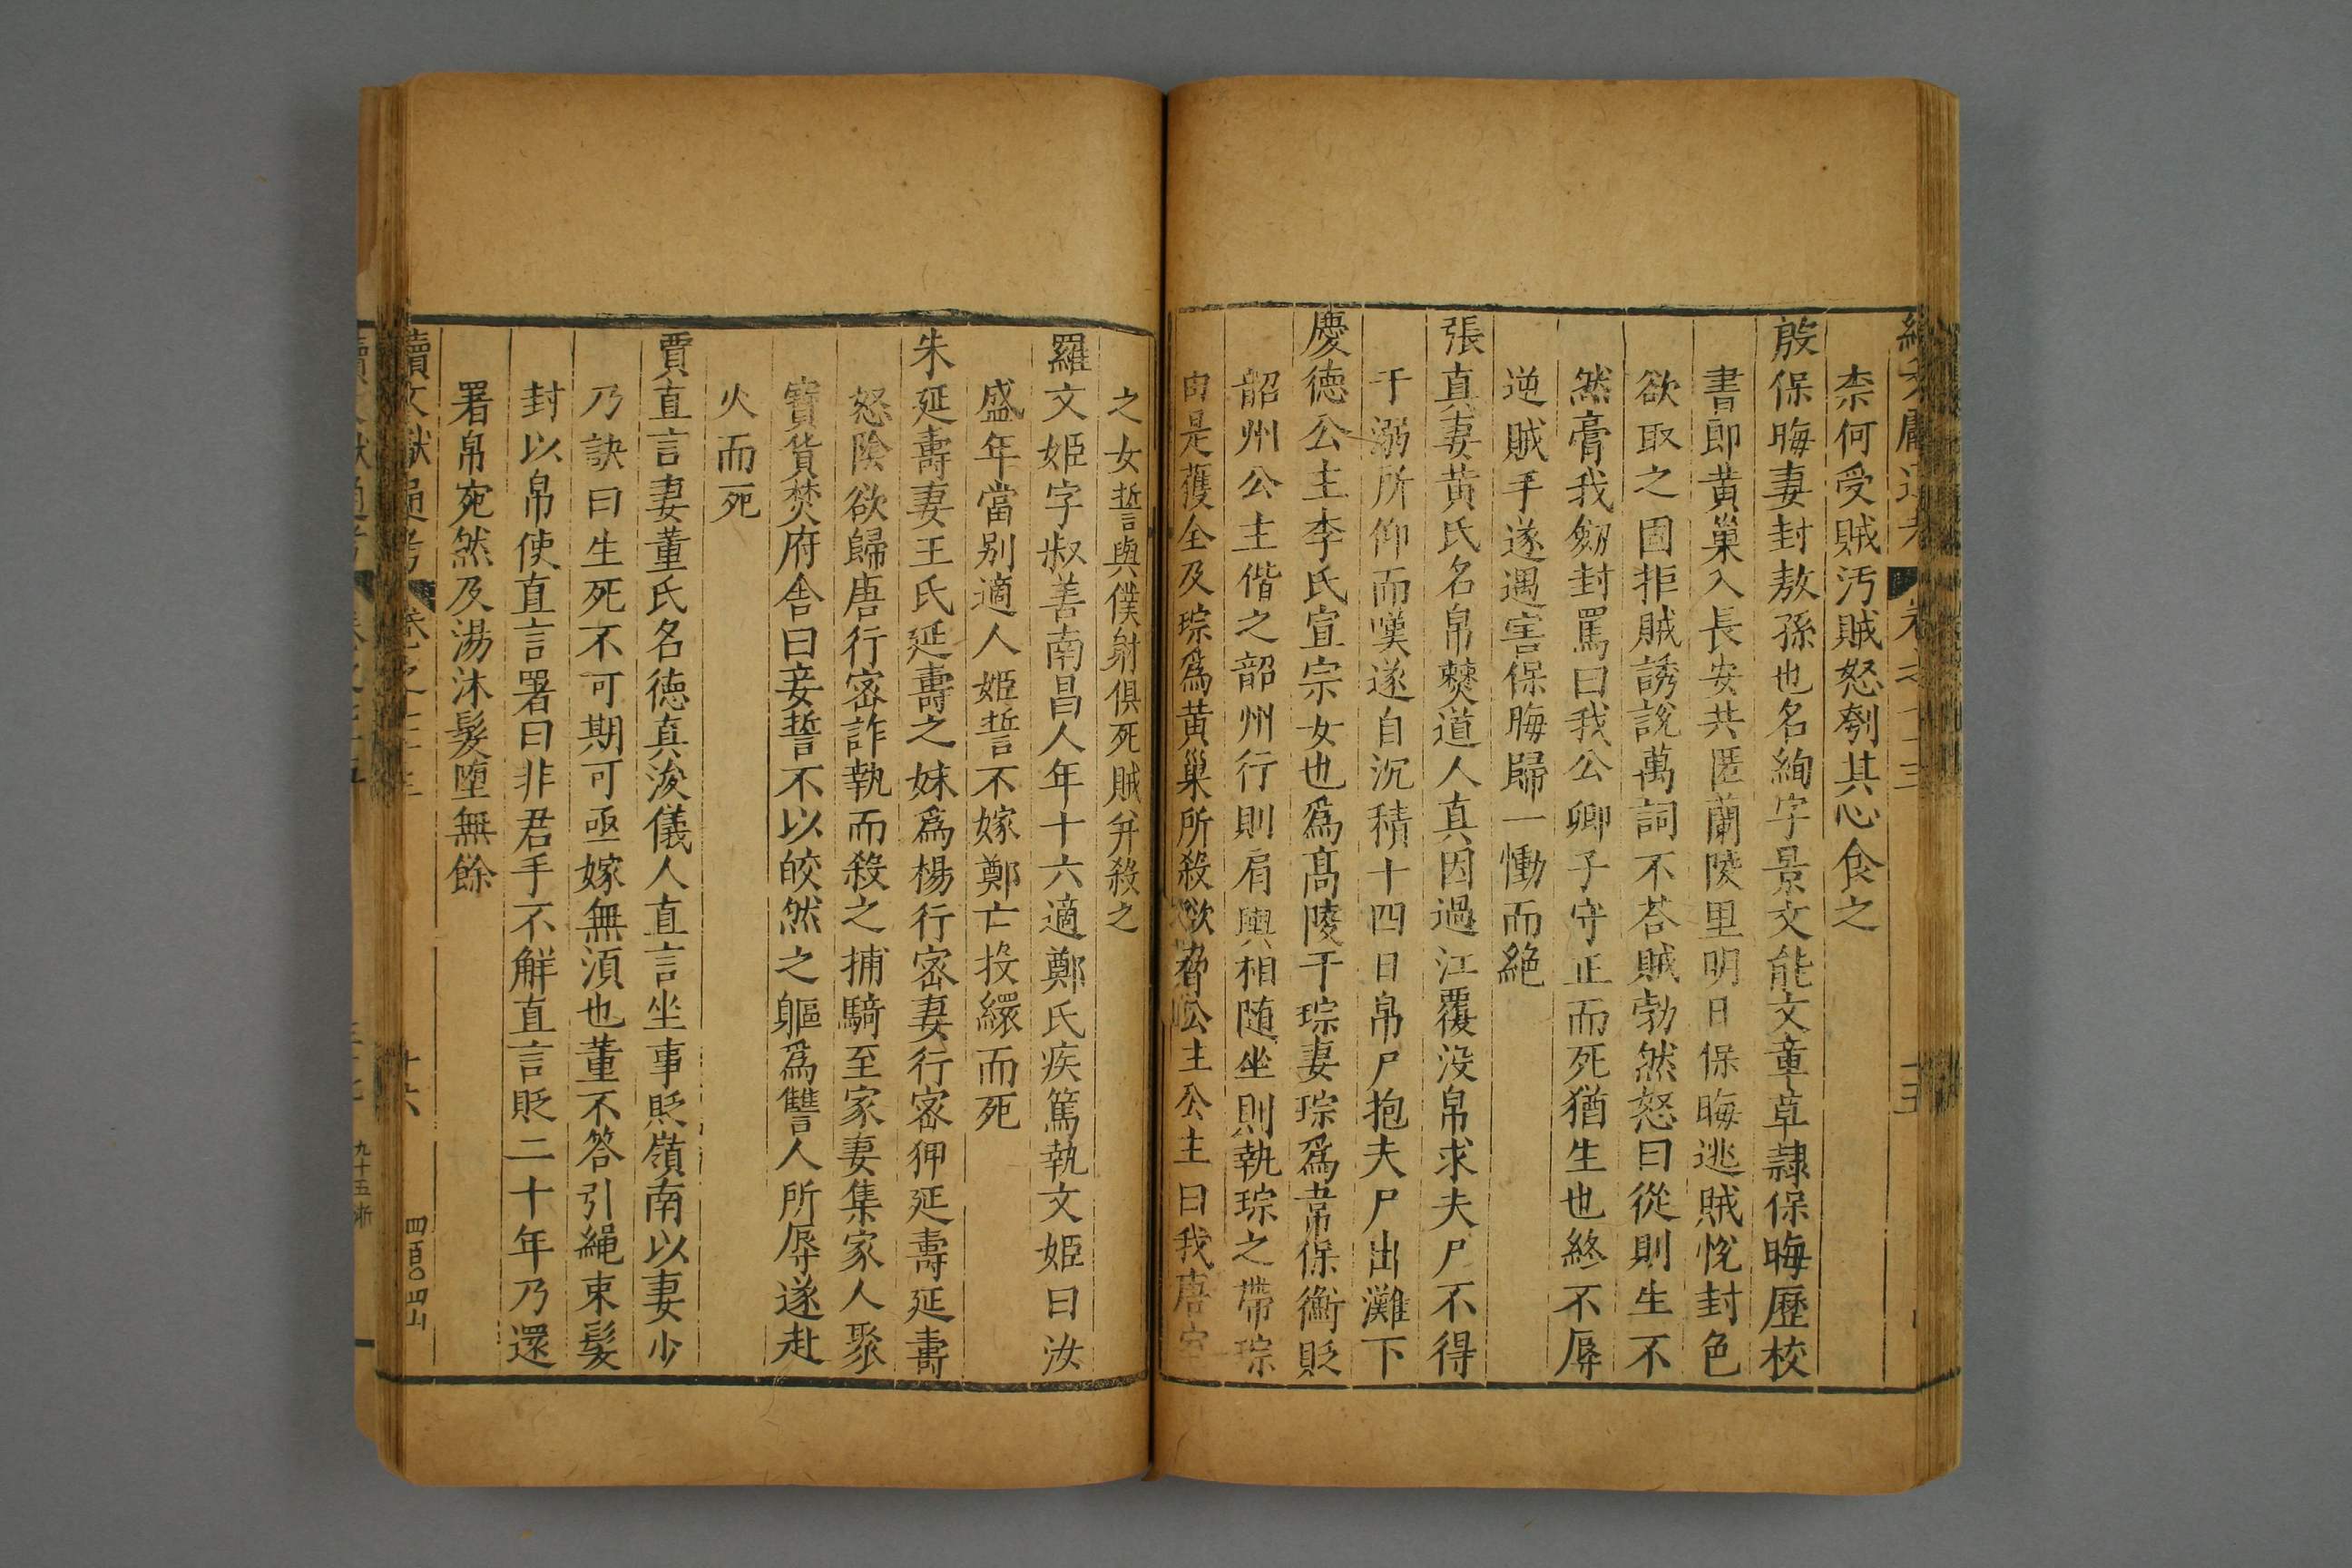 柰何受賊汚賊怒刳其心食之
殷保晦妻封敖孫也名絢字景文能文章草隷保晦歷校
書郎黄巢入長安共匿蘭陵里明日保晦逃賊悅封色
欲取之固拒賊誘說萬詞不荅賊勃然怒曰從則生不
然膏我劒封罵曰我公卿子守正而死猶生也終不辱
逆賊手遂遇害保晦歸一慟而絶
張真妻黄氏名帛僰道人真因過江覆没帛求夫尸不得
于溺所仰而嘆遂自沉積十四日帛尸抱夫尸出灘下
慶德公主李氏宣宗女也爲髙陵于琮妻琮爲韋保衡貶
韶州公主偕之韶州行則肩輿相随坐則執琮之帶琮
由是獲全及琮爲黄巢所殺欲脅公主公主曰我唐室
之女誓與僕射俱死賊并殺之
羅文姬字叔善南昌人年十六適鄭氏疾篤執文姬曰汝
盛年當别適人姬誓不嫁鄭亡投繯而死
朱延壽妻王氏延壽之妹爲楊行宻妻行宻狎延壽延壽
怒隂欲歸唐行宻詐執而殺之捕騎至家妻集家人聚
寳貨焚府舍曰妾誓不以皎然之軀爲讐人所辱遂赴
火而死
賈直言妻董氏名徳真浚儀人直言坐事貶嶺南以妻少
乃訣曰生死不可期可亟嫁無湏也董不答引繩束髮
封以帛使直言署曰非君手不觧直言貶二十年乃還
署帛宛然及湯沐髮墮無餘
續文獻通考
十六
四百〇四
九十五